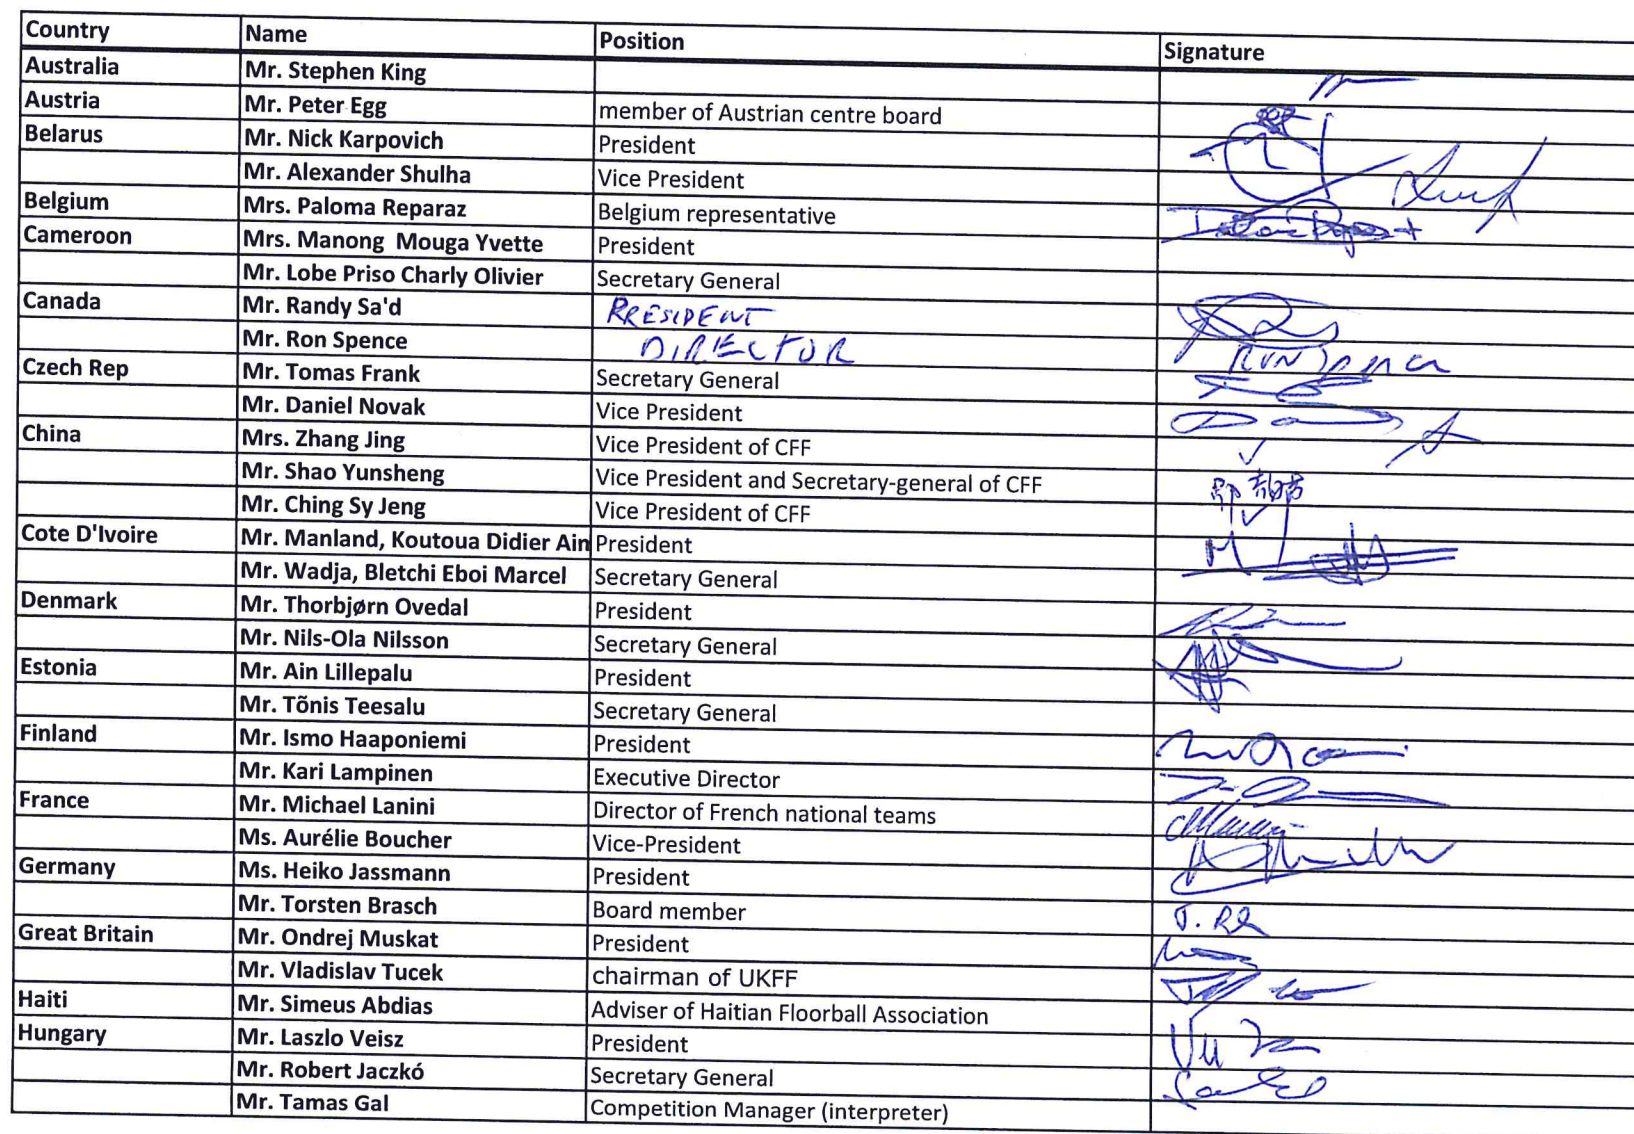 Country Name Position Signature
Australia Mr. Stephen King
Austria Mr. Peter Egg member of Austrian centre board
Belarus Mr. Nick Karpovich President
Mr. Alexander Shulha Vice President
Belgium Mrs. Paloma Reparaz Belgium representative
Cameroon Mrs. Manong Mouga Yvette President
Mr. Lobe Priso Charly Olivier Secretary General
Canada Mr. Randy Sa'd PRESIDENT
Mr. Ron Spence DIRECTOR
Czech Rep Mr. Tomas Frank Secretary General
Mr. Daniel Novak Vice President
China Mrs. Zhang Jing Vice President of CFF
Mr. Shao Yunsheng Vice President and Secretary-general of CFF
Mr. Ching Sy Jeng Vice President of CFF
Cote D'Ivoire Mr. Manland, Koutoua Didier Ain President
Mr. Wadja, Bletchi Eboi Marcel Secretary General
Denmark Mr. Thorbjørn Ovedal President
Mr. Nils-Ola Nilsson Secretary General
Estonia Mr. Ain Lillepalu President
Mr. Tõnis Teesalu Secretary General
Finland Mr. Ismo Haaponiemi President
Mr. Kari Lampinen Executive Director
France Mr. Michael Lanini Director of French national teams
Ms. Aurélie Boucher Vice-President
Germany Ms. Heiko Jassmann President
Mr. Torsten Brasch Board member
Great Britain Mr. Ondrej Muskat President
Mr. Vladislav Tucek chairman of UKFF
Haiti Mr. Simeus Abdias Adviser of Haitian Floorball Association
Hungary Mr. Laszlo Veisz President
Mr. Robert Jaczkó Secretary General
Mr. Tamas Gal Competition Manager (interpreter)